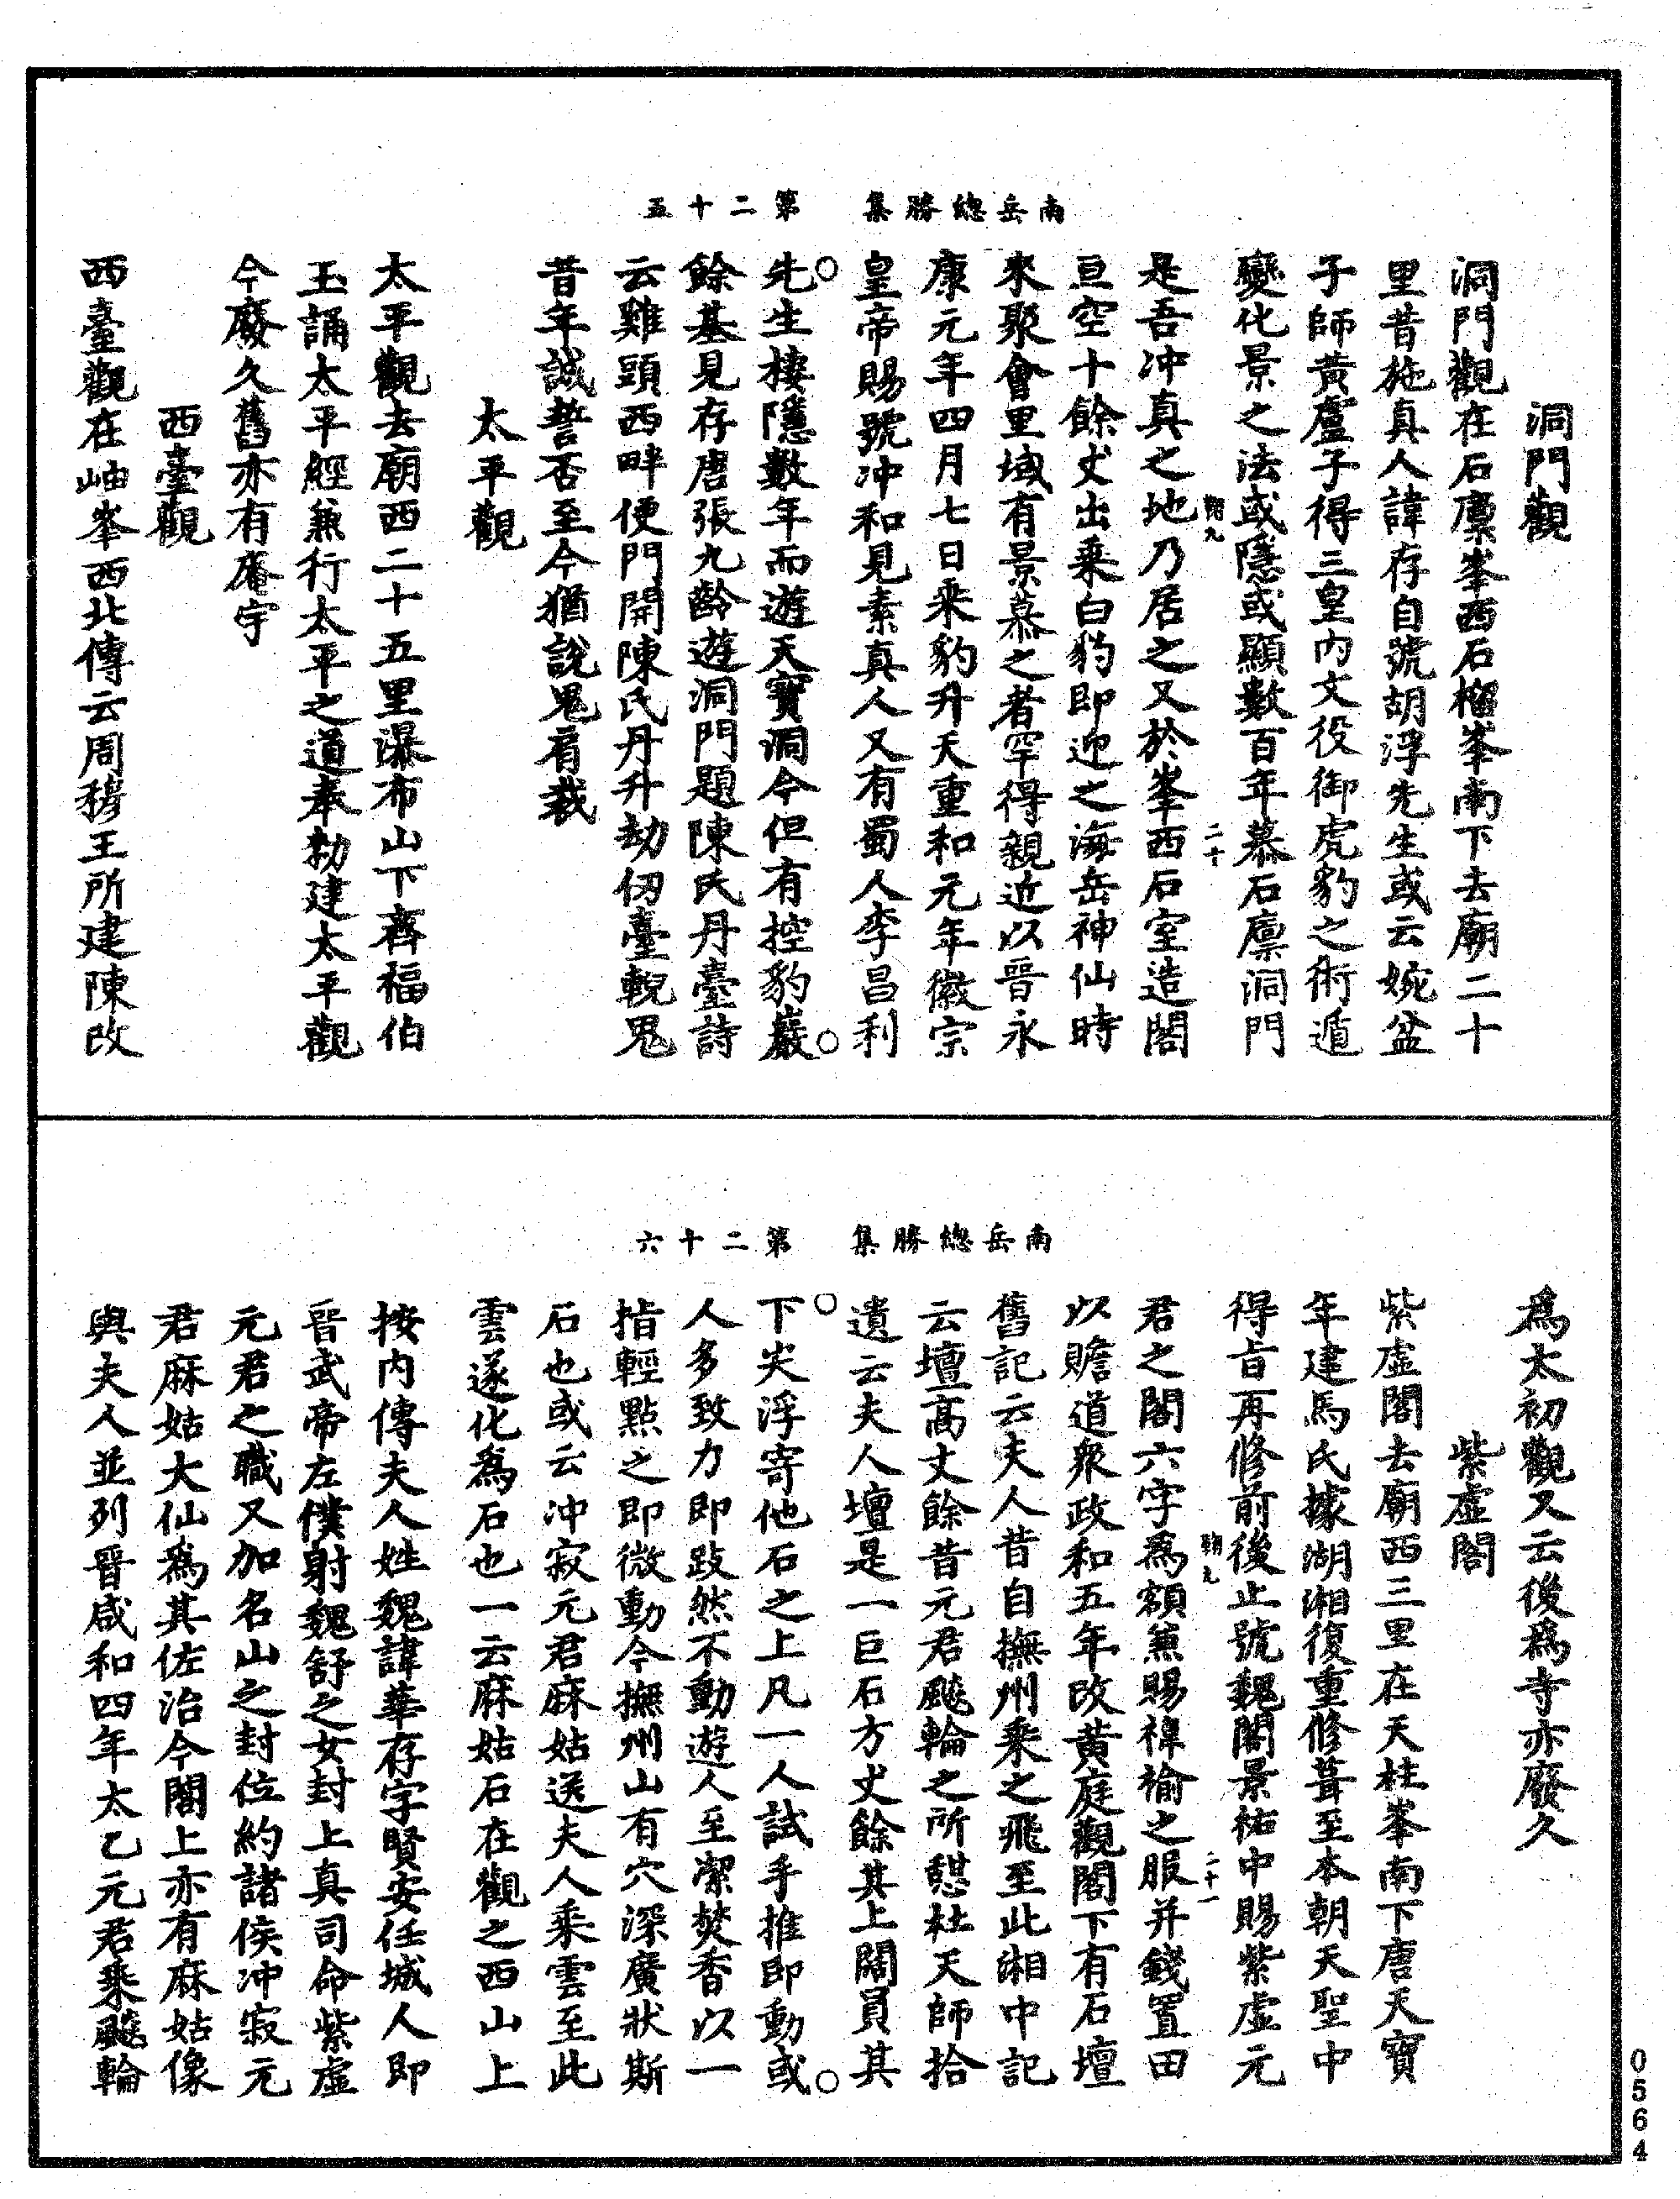 南岳總勝集　第二十五
洞門觀
洞門觀在石廪峯西石榴峯南下去廟二十
里昔施真人諱存自號胡浮先生或云婉盆
子師黃盧子得三皇內文役御虎豹之術遁
變化景之法或隱或顯數百年慕石廪洞門
鞠九
二十
是吾冲真之地乃居之又於峯西石室造閣
亘空十餘丈出乘白豹即迎之海岳神仙時
來聚會里域有景慕之者罕得親近以晉永
康元年四月七日乘豹升天重和元年徽宗
皇帝賜號冲和見素真人又有蜀人李昌利
先生棲隱數年而遊天寶洞今但有控豹巖
餘基見存唐張九齡遊洞門題陳氏丹臺詩
云雞頭西畔便門開陳氏丹升劫仞臺輗㒵
昔年誠誓否至今猶說㒵肩裁
太平觀
太平觀去廟西二十五里瀑布山下齊福伯
玉誦太平經兼行太平之道奉勑建太平觀
今廢久舊亦有庵宇
西臺觀
西臺觀在岫峯西北傳云周穆王所建陳改
南岳總勝集　第二十六
爲太初觀又云後爲寺亦廢久
紫虛閣
紫虛閣去廟西三里在天柱峯南下唐天寶
年建馬氏據湖湘復重修葺至本朝天聖中
得旨再修前後止號魏閣景祐中賜紫虛元
鞠九
二十一
君之閣六字爲額兼賜褘褕之服并錢置田
以贍道衆政和五年改黃庭觀閣下有石壇
舊記云夫人昔自撫州乘之飛至此湘中記
云壇高丈餘昔元君飈輪之所憇杜天師拾
遺云夫人壇是一巨石方丈餘其上闊員其
下尖浮寄他石之上凡一人試手推即動或
人多致力即跂然不動遊人至潔焚香以一
指輕點之即微動今撫州山有穴深廣狀斯
石也或云冲寂元君麻姑送夫人乘雲至此
雲遂化爲石也一云麻姑石在觀之西山上
按內傳夫人姓魏諱華存字賢安任城人即
晉武帝左僕射魏舒之女封上真司命紫虛
元君之職又加名山之封位約諸侯冲寂元
君麻姑大仙爲其佐治今閣上亦有麻姑像
與夫人並列晉咸和四年太乙元君乘飈輪
0564